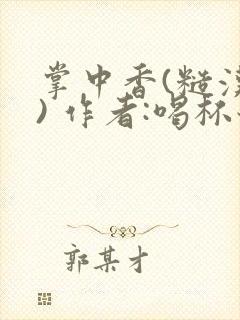 掌中香(糙
) 作者:喝杯
郭某才